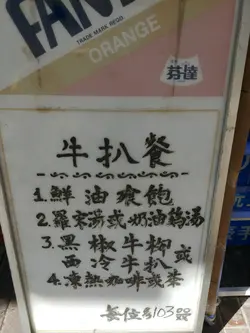 FAN
TRADE MARK REGD.
ORANGE
芬達
牛扒餐
1.鮮油餐飽
2.羅宋湯或奶油鷄湯
3.黑椒牛柳
西冷牛扒或
4.凍熱咖啡或茶
每位$103